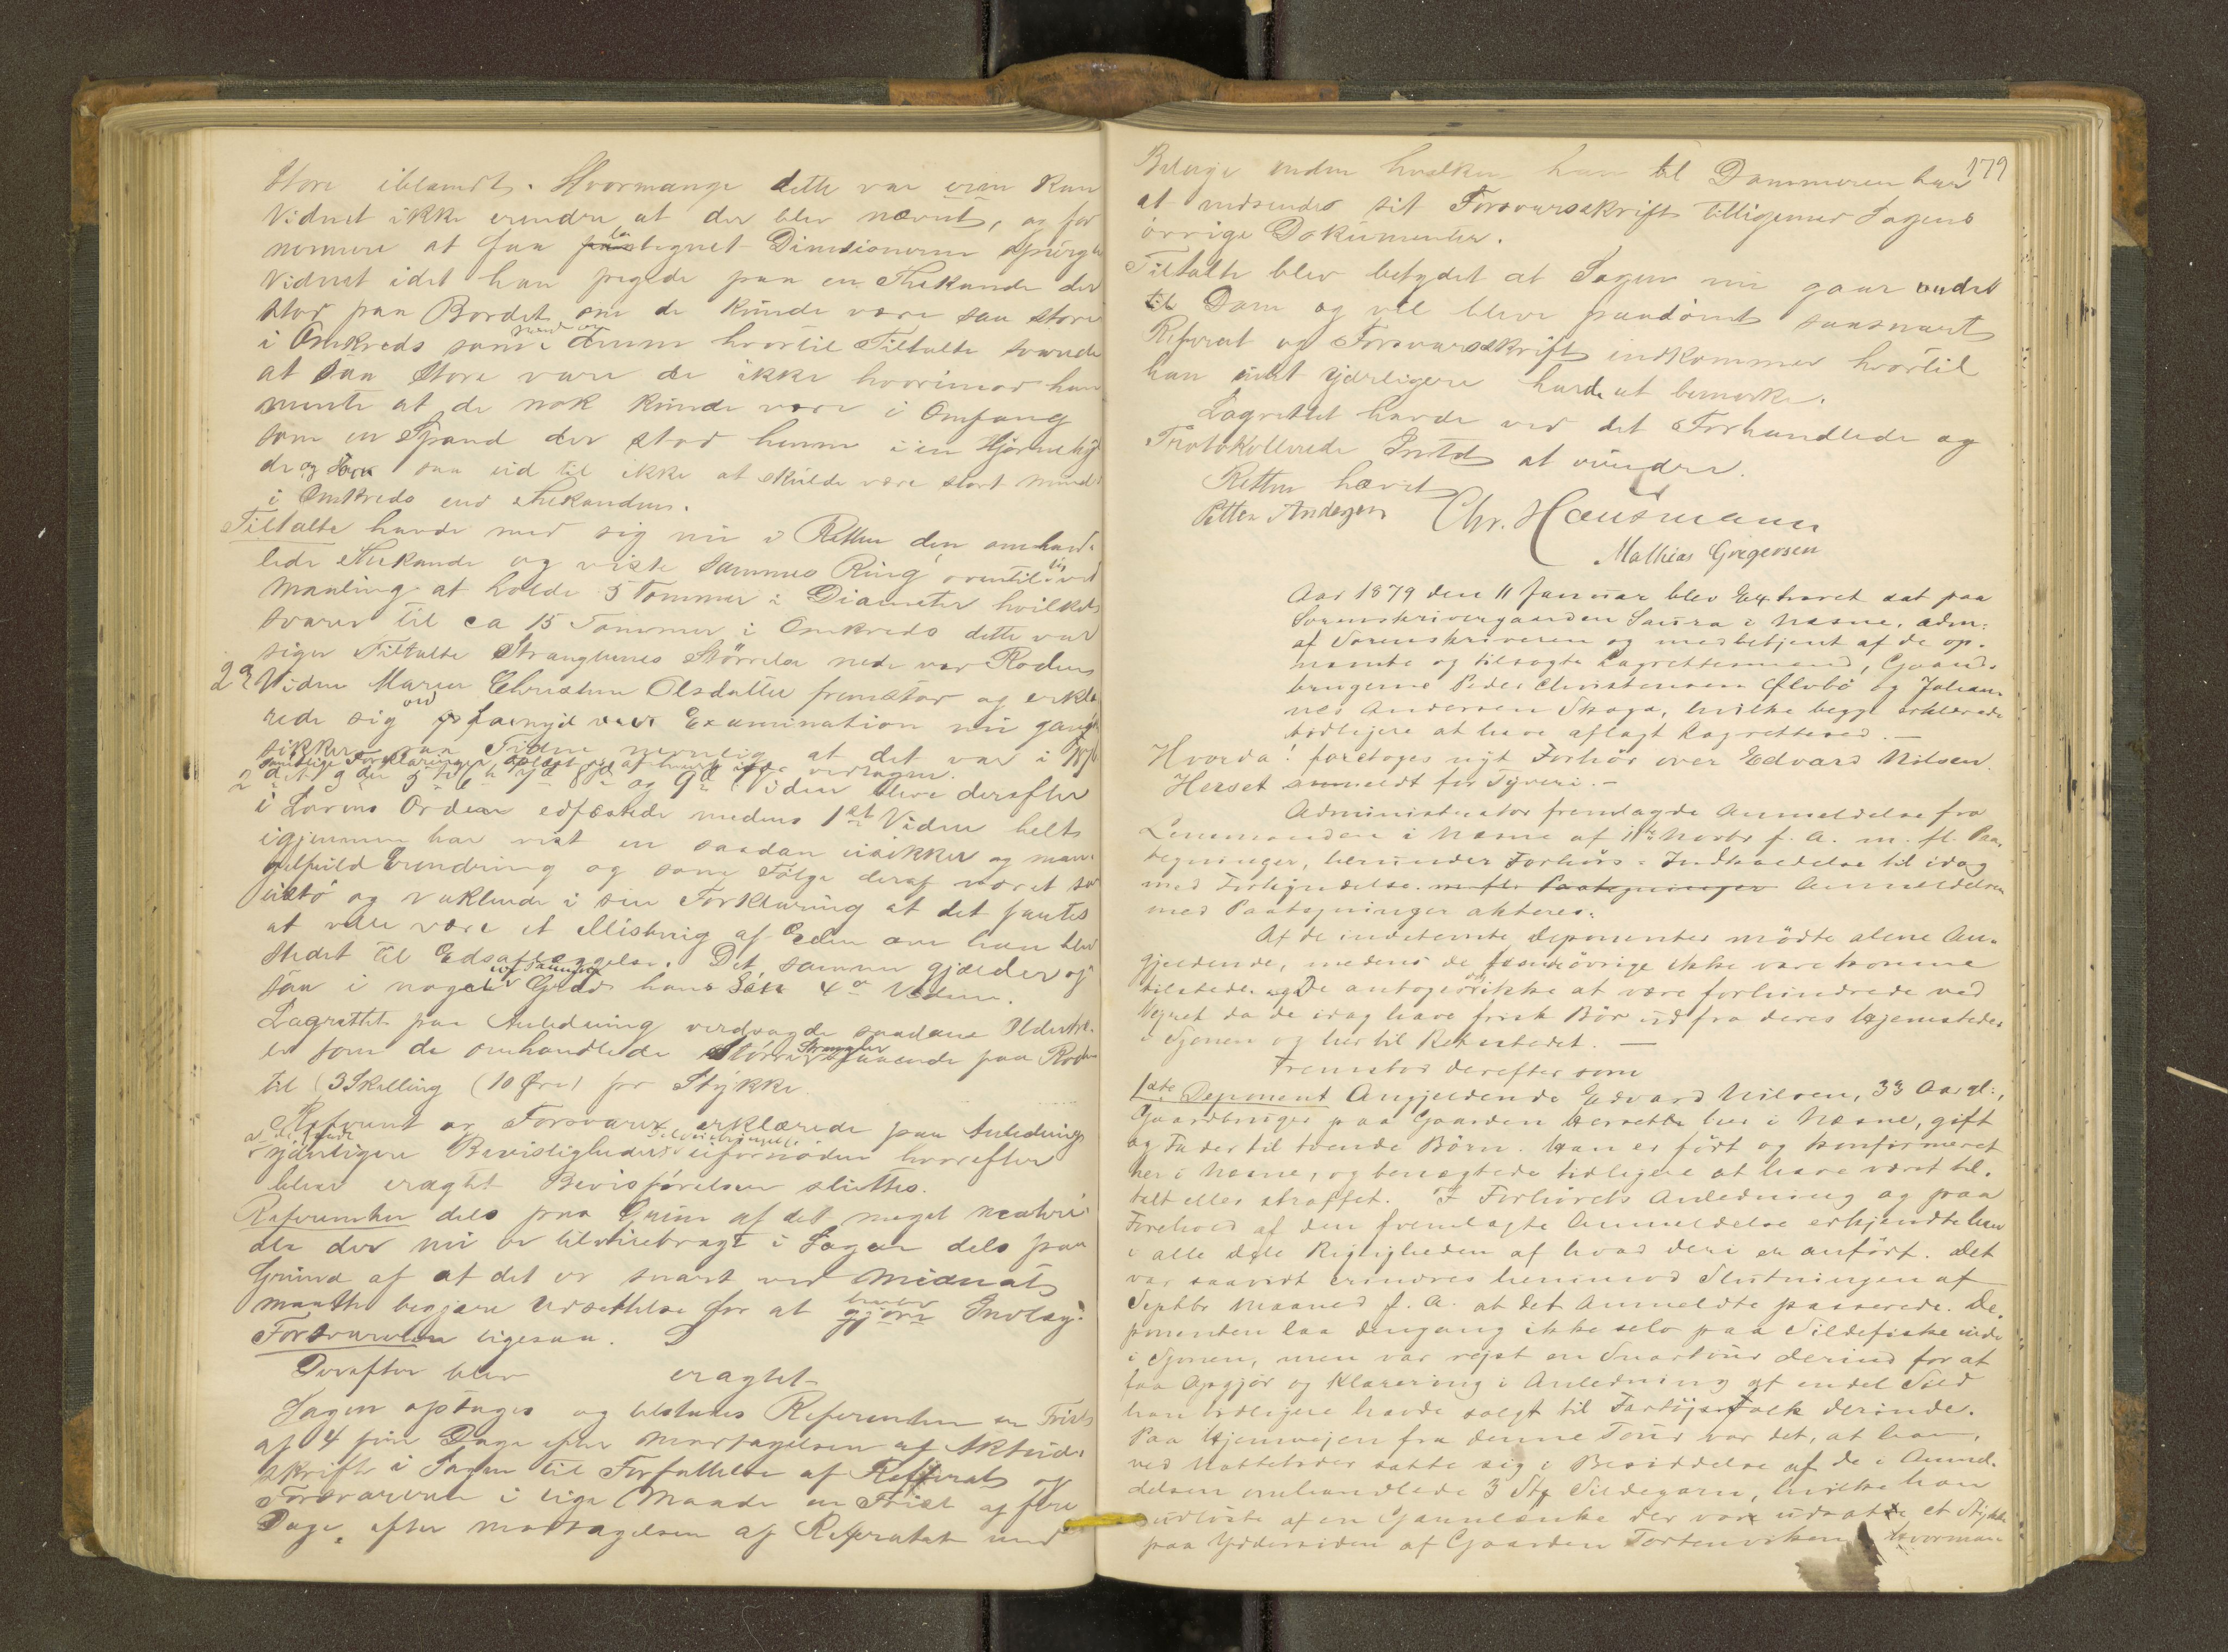 Store iblandt. Hvormange dette var kan
Vidnet ikke erindre at der blev nævnt, og for
nermere at faa betegnet Dimensionerne spurgte
Vidnet idet han pegede paa en Thekande der
stod paa Bordet om de kunde være saa store
i Omkreds som denne hvortil Tiltalte svarede
at saa store vare de ikke hvorimod han
mente at de nok kunde være i Omfang
som en Spand der stod henne i en Hjørne
de og saa ud til ikke at skulde være stort mindre
i Omkreds end Thekanden.
Tiltalte havde med sig nu i Retten den omhand-
lede Thekande og viste sammes Ring oventil ved
Maaling at holde 5 Tommer i Diameter hvilket
svarer til ca 15 Tommer i Omkreds dette var
siger Tiltalte Stranglernes Størrelse nede ved Roden
2d Vidne Maren Christine Olsdatter fremstod og erklæ-
rede sig ved fornyet Examination nu ganske
sikker paa Tiden nemlig at det var i
samtlige Forklaringer oplæst
2det 3die 5te 6te 7de 8de og 9de Vidne blev derefter
i Lovens Orden edfæstede medens 1ste Vidne helt
igjennem har vist en saadan usikker og man-
gelfuld Erindring og som Følge deraf været saa
ustø og vaklende i sin Forklaring at det fantes
at ville være et Misbrug af Eden om han blev
stedet til Edsaflæggelse. Det samme gjælder og-
saa i nogen Grad hans Søn 4de Vidne.
Lagrettet paa Anledning verdsagde saadane
er som de omhandlede større Strangler staaende paa Roden
til 3 Skilling (10 Øre) pr Stykke.
Referent og Forsvarer erklærede paa Anledning
yderligere Bevisligheders Tilveiebringelse ufornøden hvorefter
blev eragtet Bevisførelsen sluttet.
Referenten dels paa Grund af det meget materi-
ale der nu er tilveiebragt i Sagen dels paa
Grund af at det er snart ved Midnat
maatte begjære Udsættelse for at gjøre Indlæg.
Forsvareren ligesaa.
Derefter blev eragtet
Sagen optages og tilstaaes Referenten en Frist
af 4 fire Dage efter Modtagelsen af Aktud-
skrift i Sagen til Forfattelse af Referat og
Forsvareren i lige Maade en Frist af fire
Dage efter Modtagelsen af Referatet med
179
Bilage inden hvilken han til Dommeren har
at indsende sit Forsvarsskrift tilligemed Sagens
øvrige Dokumenter.
Tiltalte blev betydet at Sagen nu gaar ind
til Dom og vil blive paadømt saasnart
Referat og Forsvarsskrift indkommer hvortil
han intet yderligere havde at bemærke.
Lagrettet havde ved det Forhandlede og
Protokollerede Intet at erindre.
Retten hævet
Petter Andersen Chr. Hausmann
Mathias Gregersen
Aar 1879 den 11 Januar blev Extraret sat paa
Sorenskrivergaarden Saura i Næsne, adm:
af Sorenskriveren og medbetjent af de op-
nævnte og tilsagte Lagrettesmænd, Gaard-
brugerne Peder Christensen Ølvbø og Johan-
nes Andersen Skoga, hvilke begge erklærede
tidligere at have aflagt Lagretteseed. —
Hvorda! foretoges nyt Forhør over Edvard Nilsen
Herset anmeldt for Tyveri. —
Administrator fremlagde Anmeldelse fra
Lensmanden i Næsne af 11te Novbr f. A. m. fl. Paa-
tegninger, herunder Forhørs-Indkaldelse til idag
med Forkyndelse. m. fl. Paategninger Anmeldelsen
med Paategninger akteres.
Af de indstevnte Deponenter mødte alene An-
gjældende, medens de øvrige ikke vare komne
tilstede. og De antoges ikke at være forhindrede ved
Veiret da de idag have frisk Bør ud fra deres Hjemsteder
i Sjonen og her til Retsstedet. —
Fremstod derefter som
1ste Deponent Angjeldende Edvard Nilsen, 33 Aar gl:,
Gaardbruger paa Gaarden Herset her i Næsne, gift
og Fader til tvende Børn. Han er født og konfirmeret
her i Næsne, og benægtede tidligere at have været til-
talt eller straffet. I Forhørets Anledning og paa
Forehold af den fremlagte Anmeldelse erkjendte han
i alle dele Rigtigheden af hvad deri er anført. Det
var saavidt erindres henimod Slutningen af
Septbr Maaned f. A. at det Anmeldte passerede. De-
ponenten laa dengang ikke selv paa Sildefiske inde
i Sjonen, men var rejst en Snartour derind for at
faa Opgjør og Klarering i Anledning af endel Sild
han tidligere havde solgt til Fartøjsfolk derinde.
Paa Hjemvejen fra denne Tour var det, at han,
ved Nattetider satte sig i Besiddelse af de i Anmel-
delsen omhandlede 3 Stk Sildegarn, hvilke han
udløste af en Garnlænke der var udsatte et Stykke
paa Ydersiden af Gaarden Tortenviken. Hvorman-